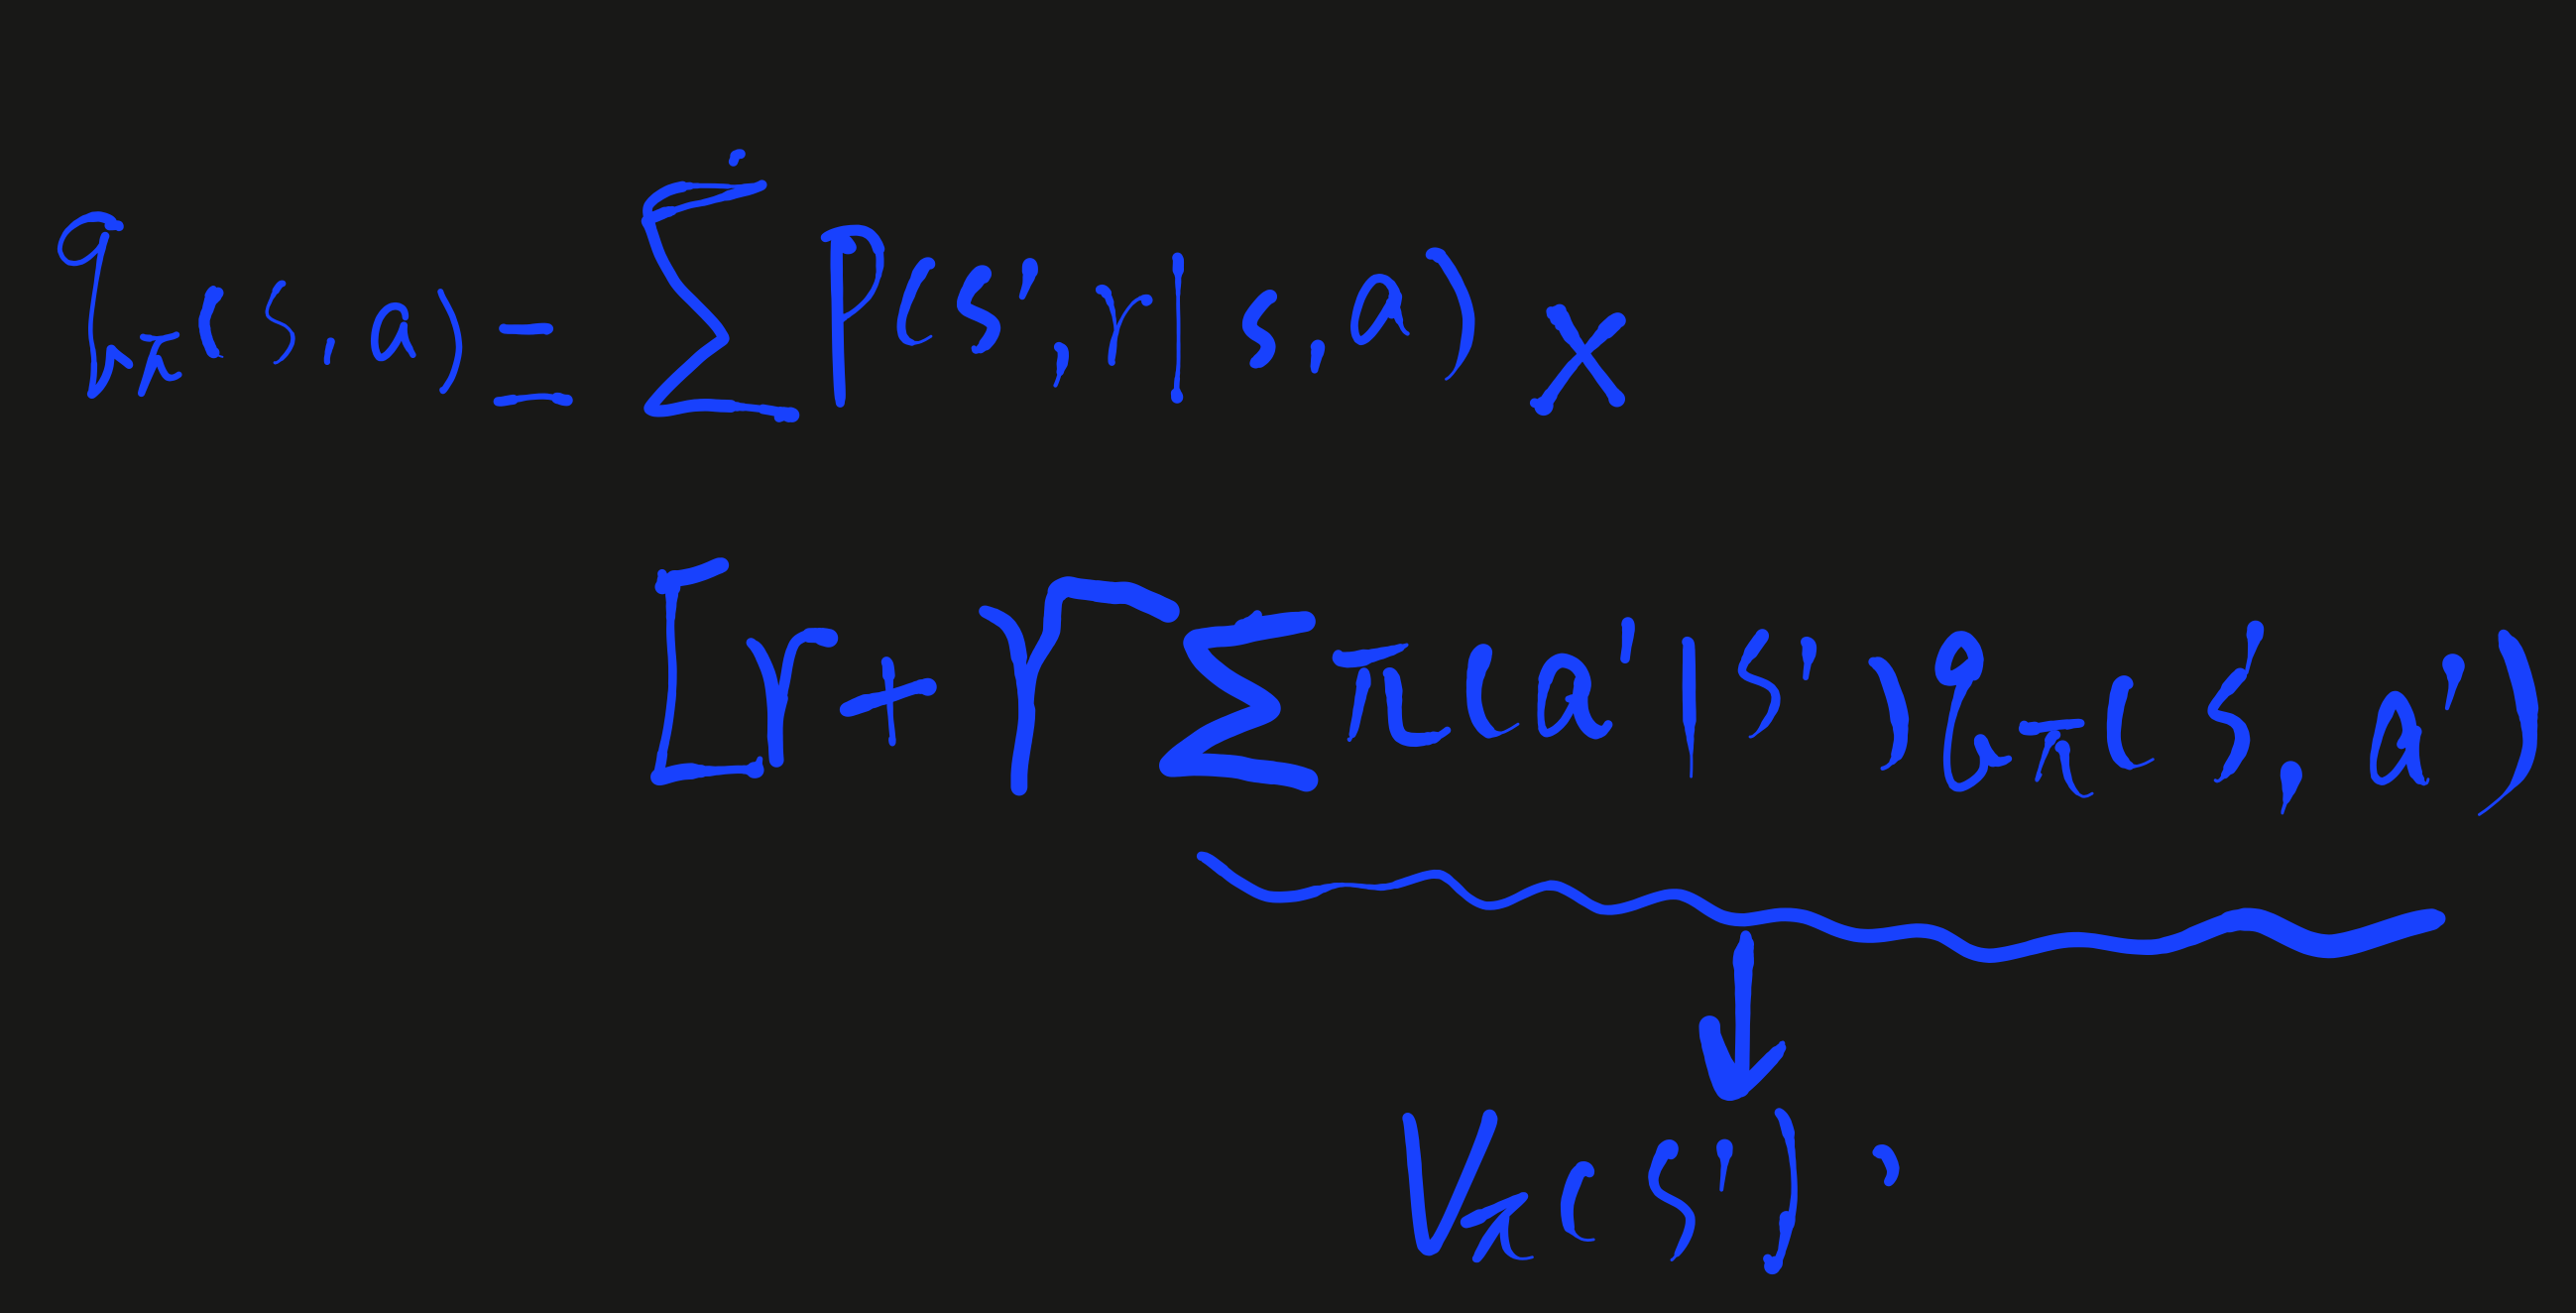 qπ(s,a) = ∑ P(s',r|s,a) ×
[r+γ∑π(a'|s')qπ(s',a')
Vπ(s'),